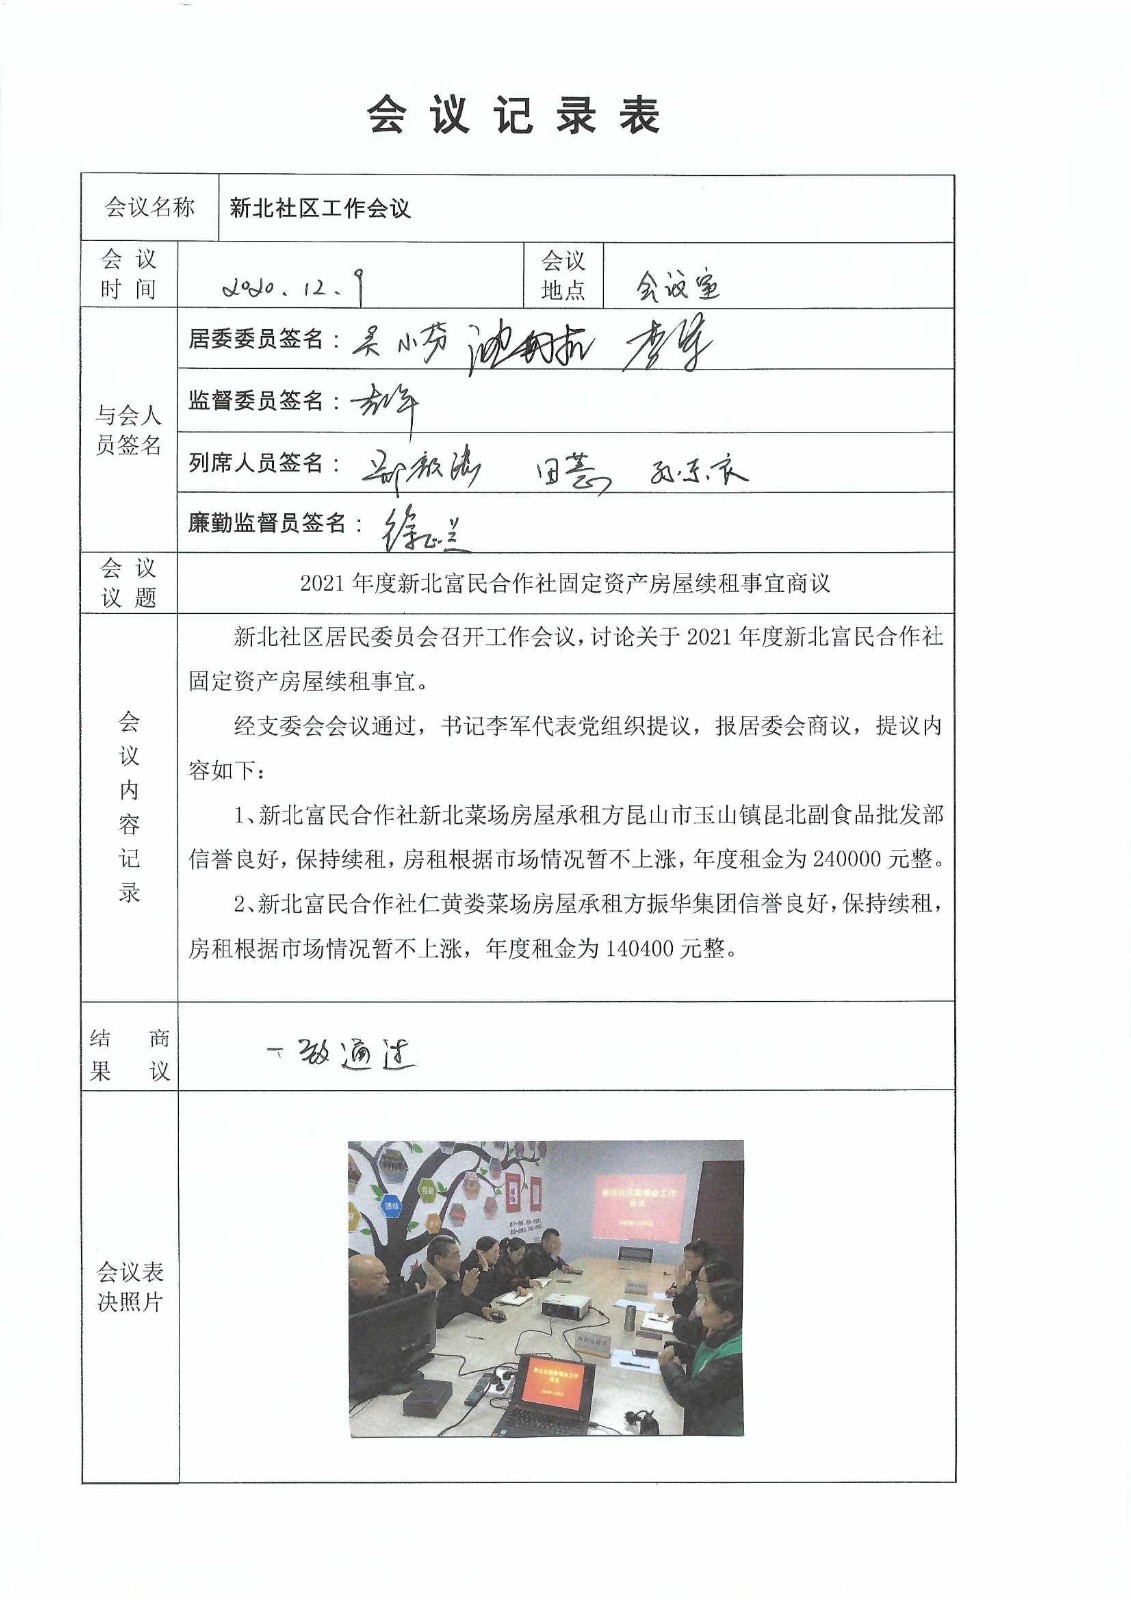 会议记录表
会议名称 新北社区工作会议
会议时间 2020.12.9 会议地点 会议室
与会人员签名
居委委员签名：吴小芬 李军
监督委员签名：
列席人员签名：田慧
廉勤监督员签名：徐正兰
会议议题 2021年度新北富民合作社固定资产房屋续租事宜商议
会议内容记录
新北社区居民委员会召开工作会议，讨论关于2021年度新北富民合作社
固定资产房屋续租事宜。
经支委会会议通过，书记李军代表党组织提议，报居委会商议，提议内
容如下：
1、新北富民合作社新北菜场房屋承租方昆山市玉山镇昆北副食品批发部
信誉良好，保持续租，房租根据市场情况暂不上涨，年度租金为240000元整。
2、新北富民合作社仁黄娄菜场房屋承租方振华集团信誉良好，保持续租，
房租根据市场情况暂不上涨，年度租金为140400元整。
结果商议 一致通过
会议表决照片
新北社区居委会工作
会议
团结
新北社区居委会工作
会议